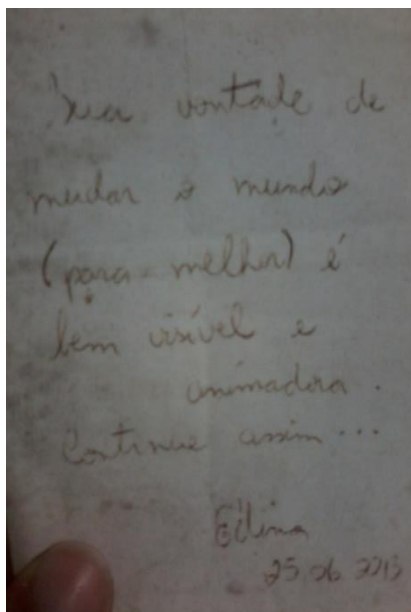 Sua vontade de
mudar o mundo
(para melhor) é
bem visível e
animadora.
Continue assim...
25.06.2013